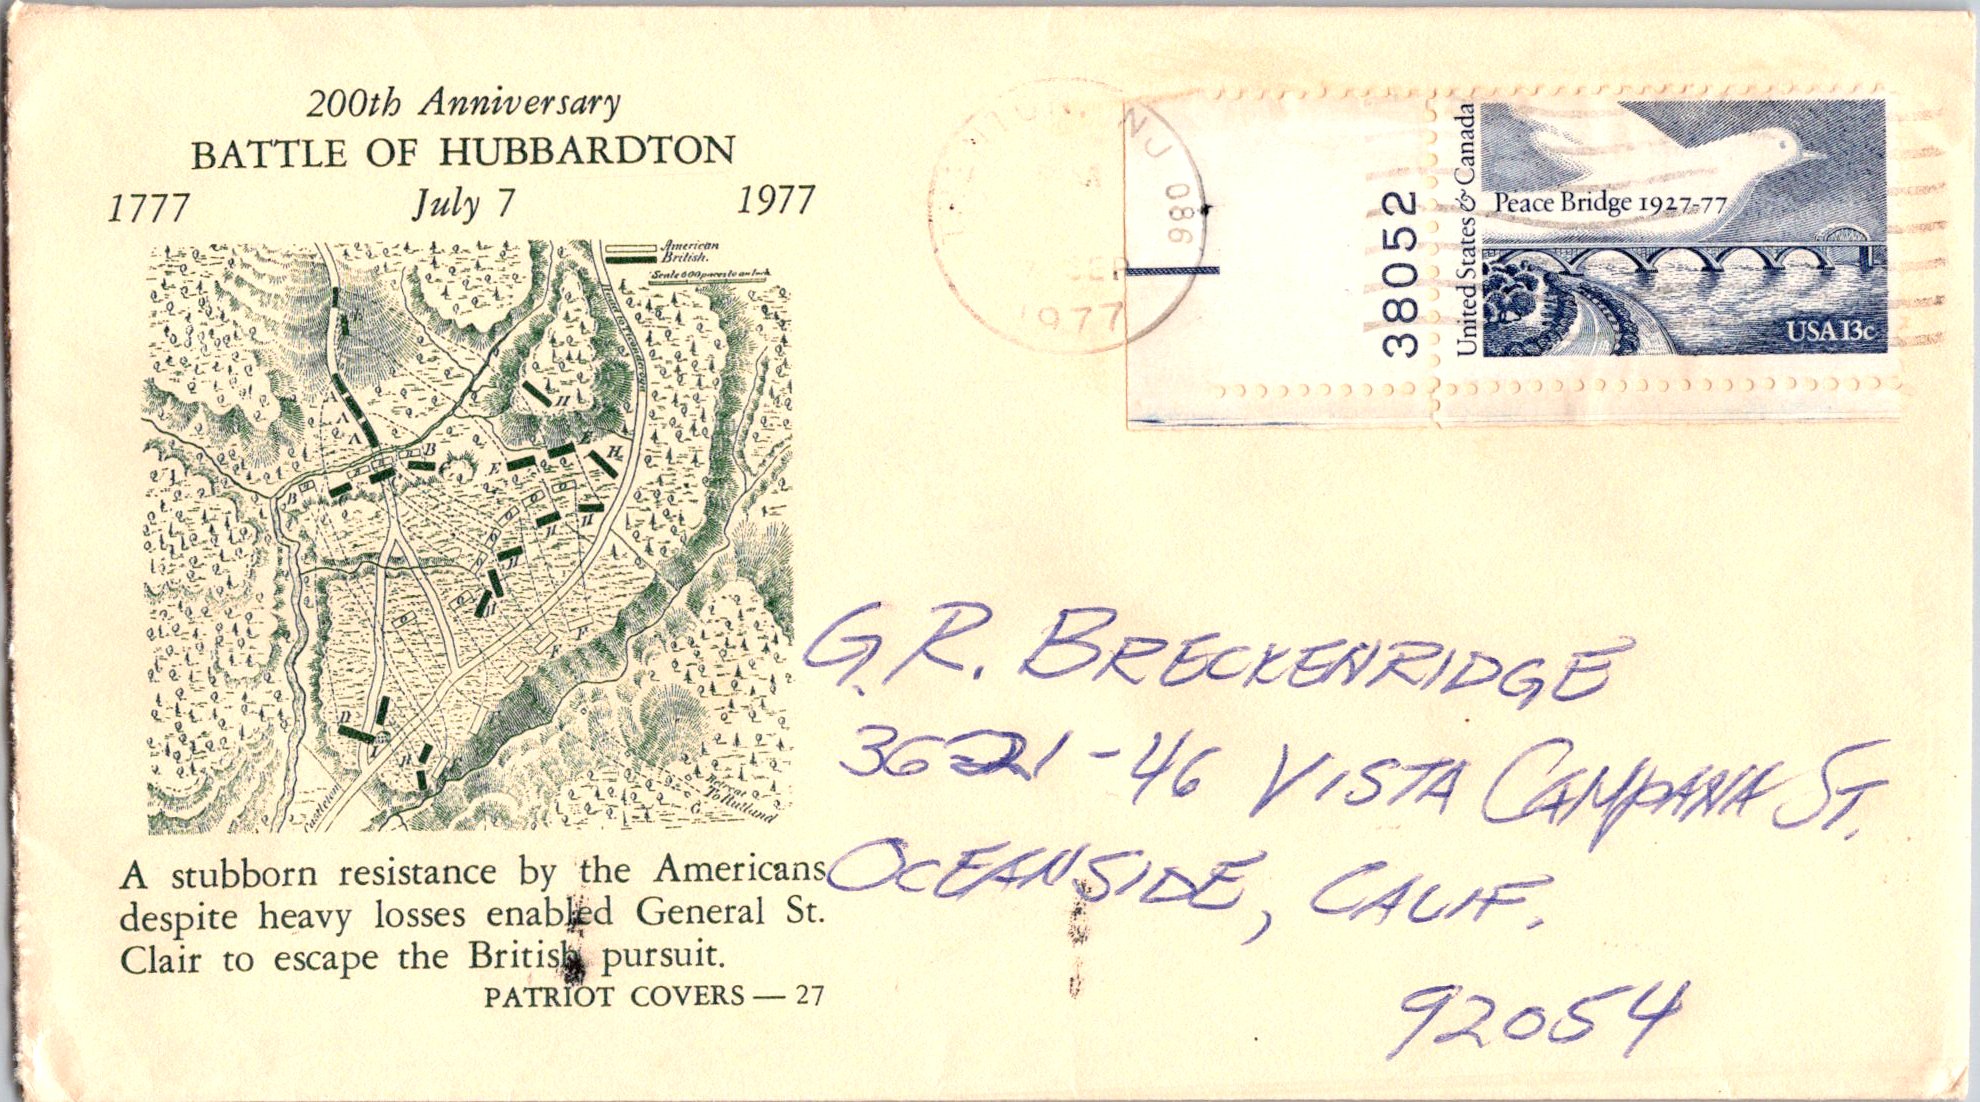 200th Anniversary
BATTLE OF HUBBARDTON
1777 July 7 1977
American
British.
Scale 600 paces to an Inch
Road to Ticonderoga
A
A
A
B
B
E
E
H
H
H
H
H
H
F
F
D
H
G
Castleton
To Rutland
A stubborn resistance by the Americans
despite heavy losses enabled General St.
Clair to escape the British pursuit.
PATRIOT COVERS — 27
TRENTON, NJ 086
SEP
1977
38052
United States & Canada
Peace Bridge 1927-77
USA 13c
G.R. BRECKENRIDGE
3621-46 VISTA CAMPANA ST.
OCEANSIDE, CALIF.
92054